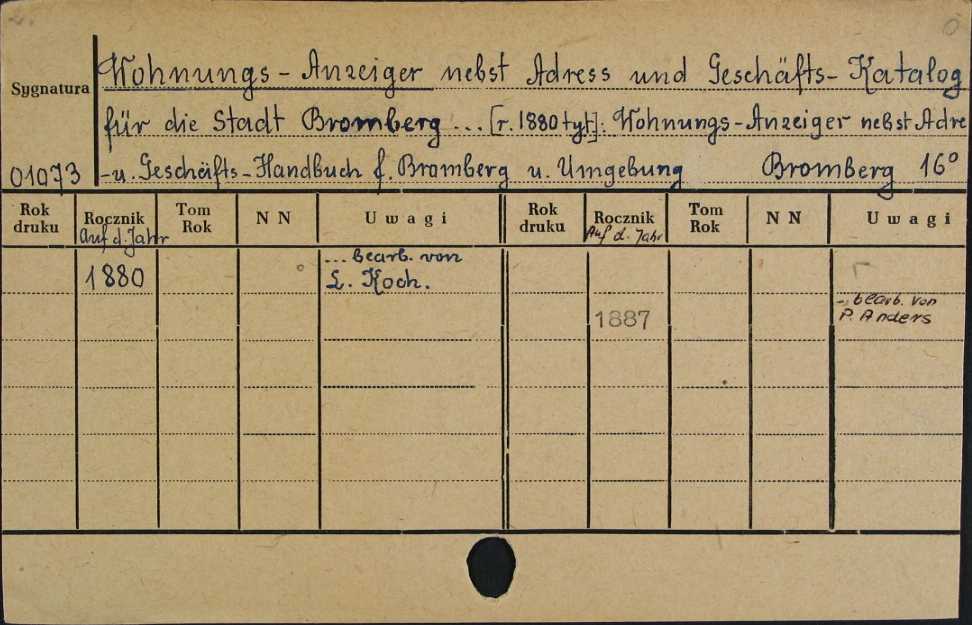 Wohnungs-Anzeiger nebst Adress und Geschäfts-Katalog
Sygnatura
für die Stadt Bromberg ... [r. 1880 tyt]: Wohnungs-Anzeiger nebst Adre
01073 -u. Geschäfts-Handbuch f. Bromberg u. Umgebung Bromberg 16°
Rok druku Rocznik Tom Rok N N Uwagi Rok druku Rocznik Tom Rok N N Uwagi
Auf d. Jahr Auf d. Jahr
... bearb. von
1880 L. Koch.
- bearb. von
1887 P. Anders